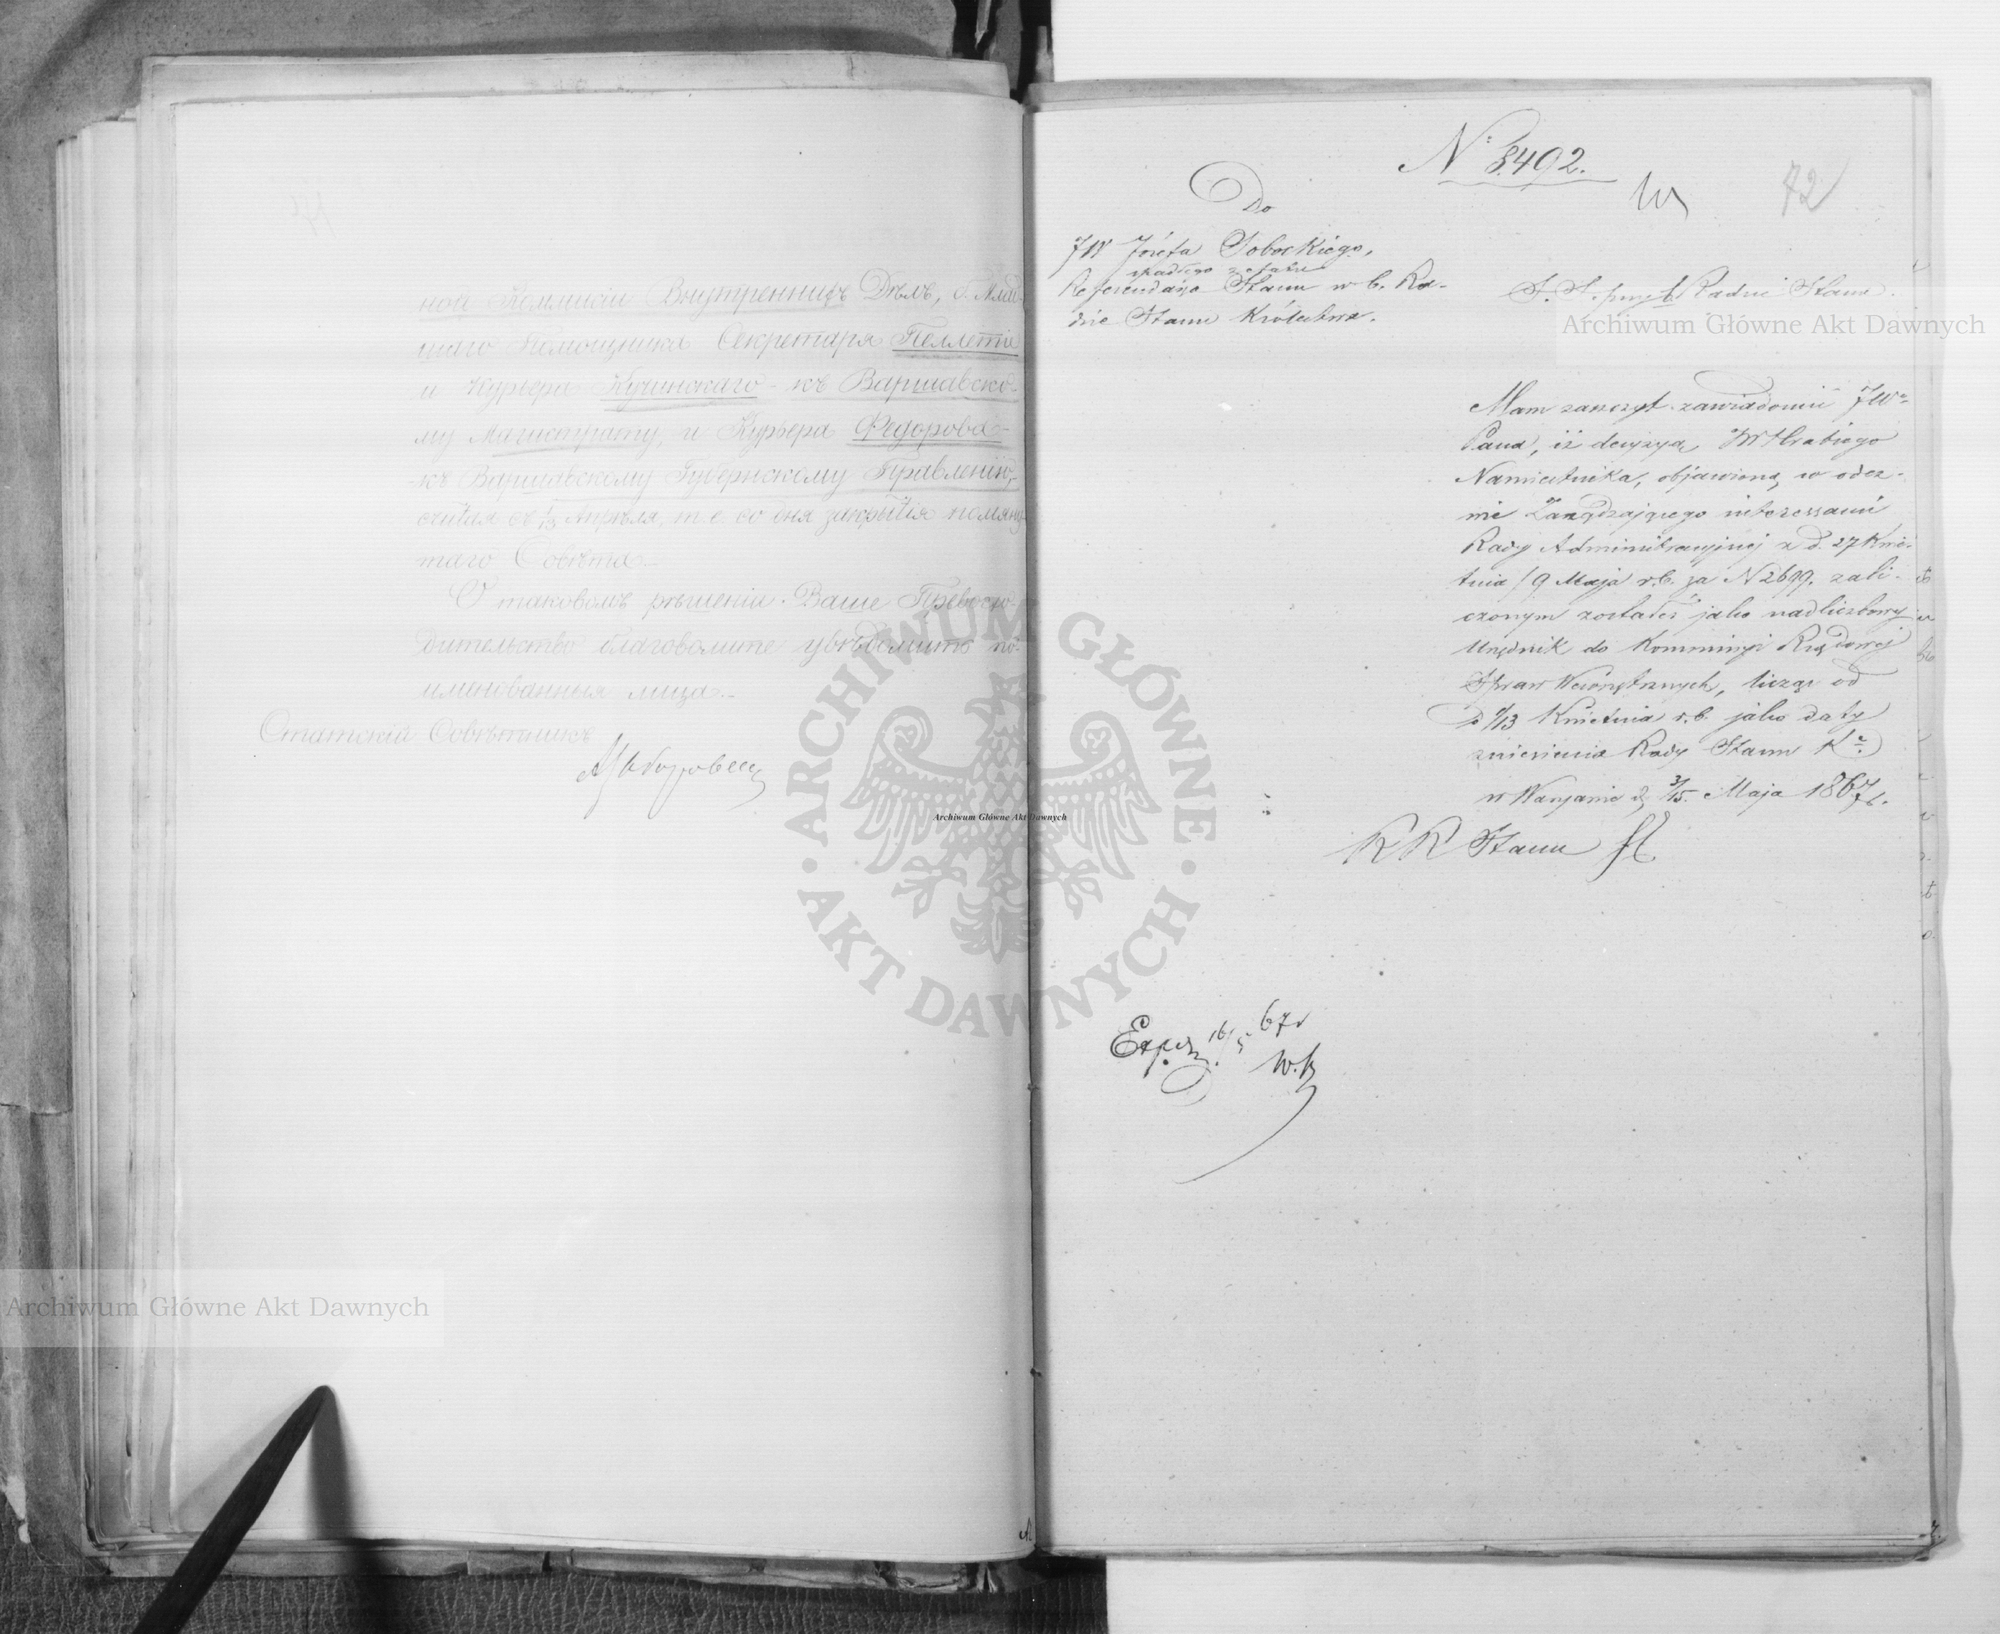 ной Коммисіи Внутреннихъ Дѣлъ, б. Млад-
шаго Помощника Секретаря Пеллети
и Курьера Кучинскаго - къ Варшавско-
му Магистрату, и Курьера Федорова -
къ Варшавскому Губернскому Правленію,
считая съ 1/13 Апрѣля, т. е. со дня закрытія помяну-
таго Совѣта.-
О таковомъ рѣшеніи Ваше Превосхо-
дительство благоволите увѣдомить по-
именованныя лица.-
Статскій Совѣтникъ
No 3.492.
72
Do
JW Józefa Sobockiégo,
spadłego z etatu
Referendarza Stanu w b. Ra-
dzie Stanu Królestwa.
S. S. przy b. Radzie Stanu
Mam zaszczyt zawiadomić JWo
Pana, iż decyzyą JW Hrabiego
Namiestnika, objawioną w odez-
wie Zarządzającego interessami
Rady Administracyjnej z d. 27 Kwie-
tnia / 9 Maja r.b. za N 2699. zali-
czonym zostałeś jako nadliczbowy
Urzędnik do Kommissyi Rządowej
Spraw Wewnętrznych, licząc od
d 1/13 Kwietnia r.b. jako daty
zniesienia Rady Stanu Ka.
w Warszawie d. 3/15. Maja 1867 r.
R R Stanu
Exped. 16/5 67 r
W.K
Archiwum Główne Akt Dawnych
Archiwum Główne Akt Dawnych
Archiwum Główne Akt Dawnych
ARCHIWUM GŁÓWNE
AKT DAWNYCH